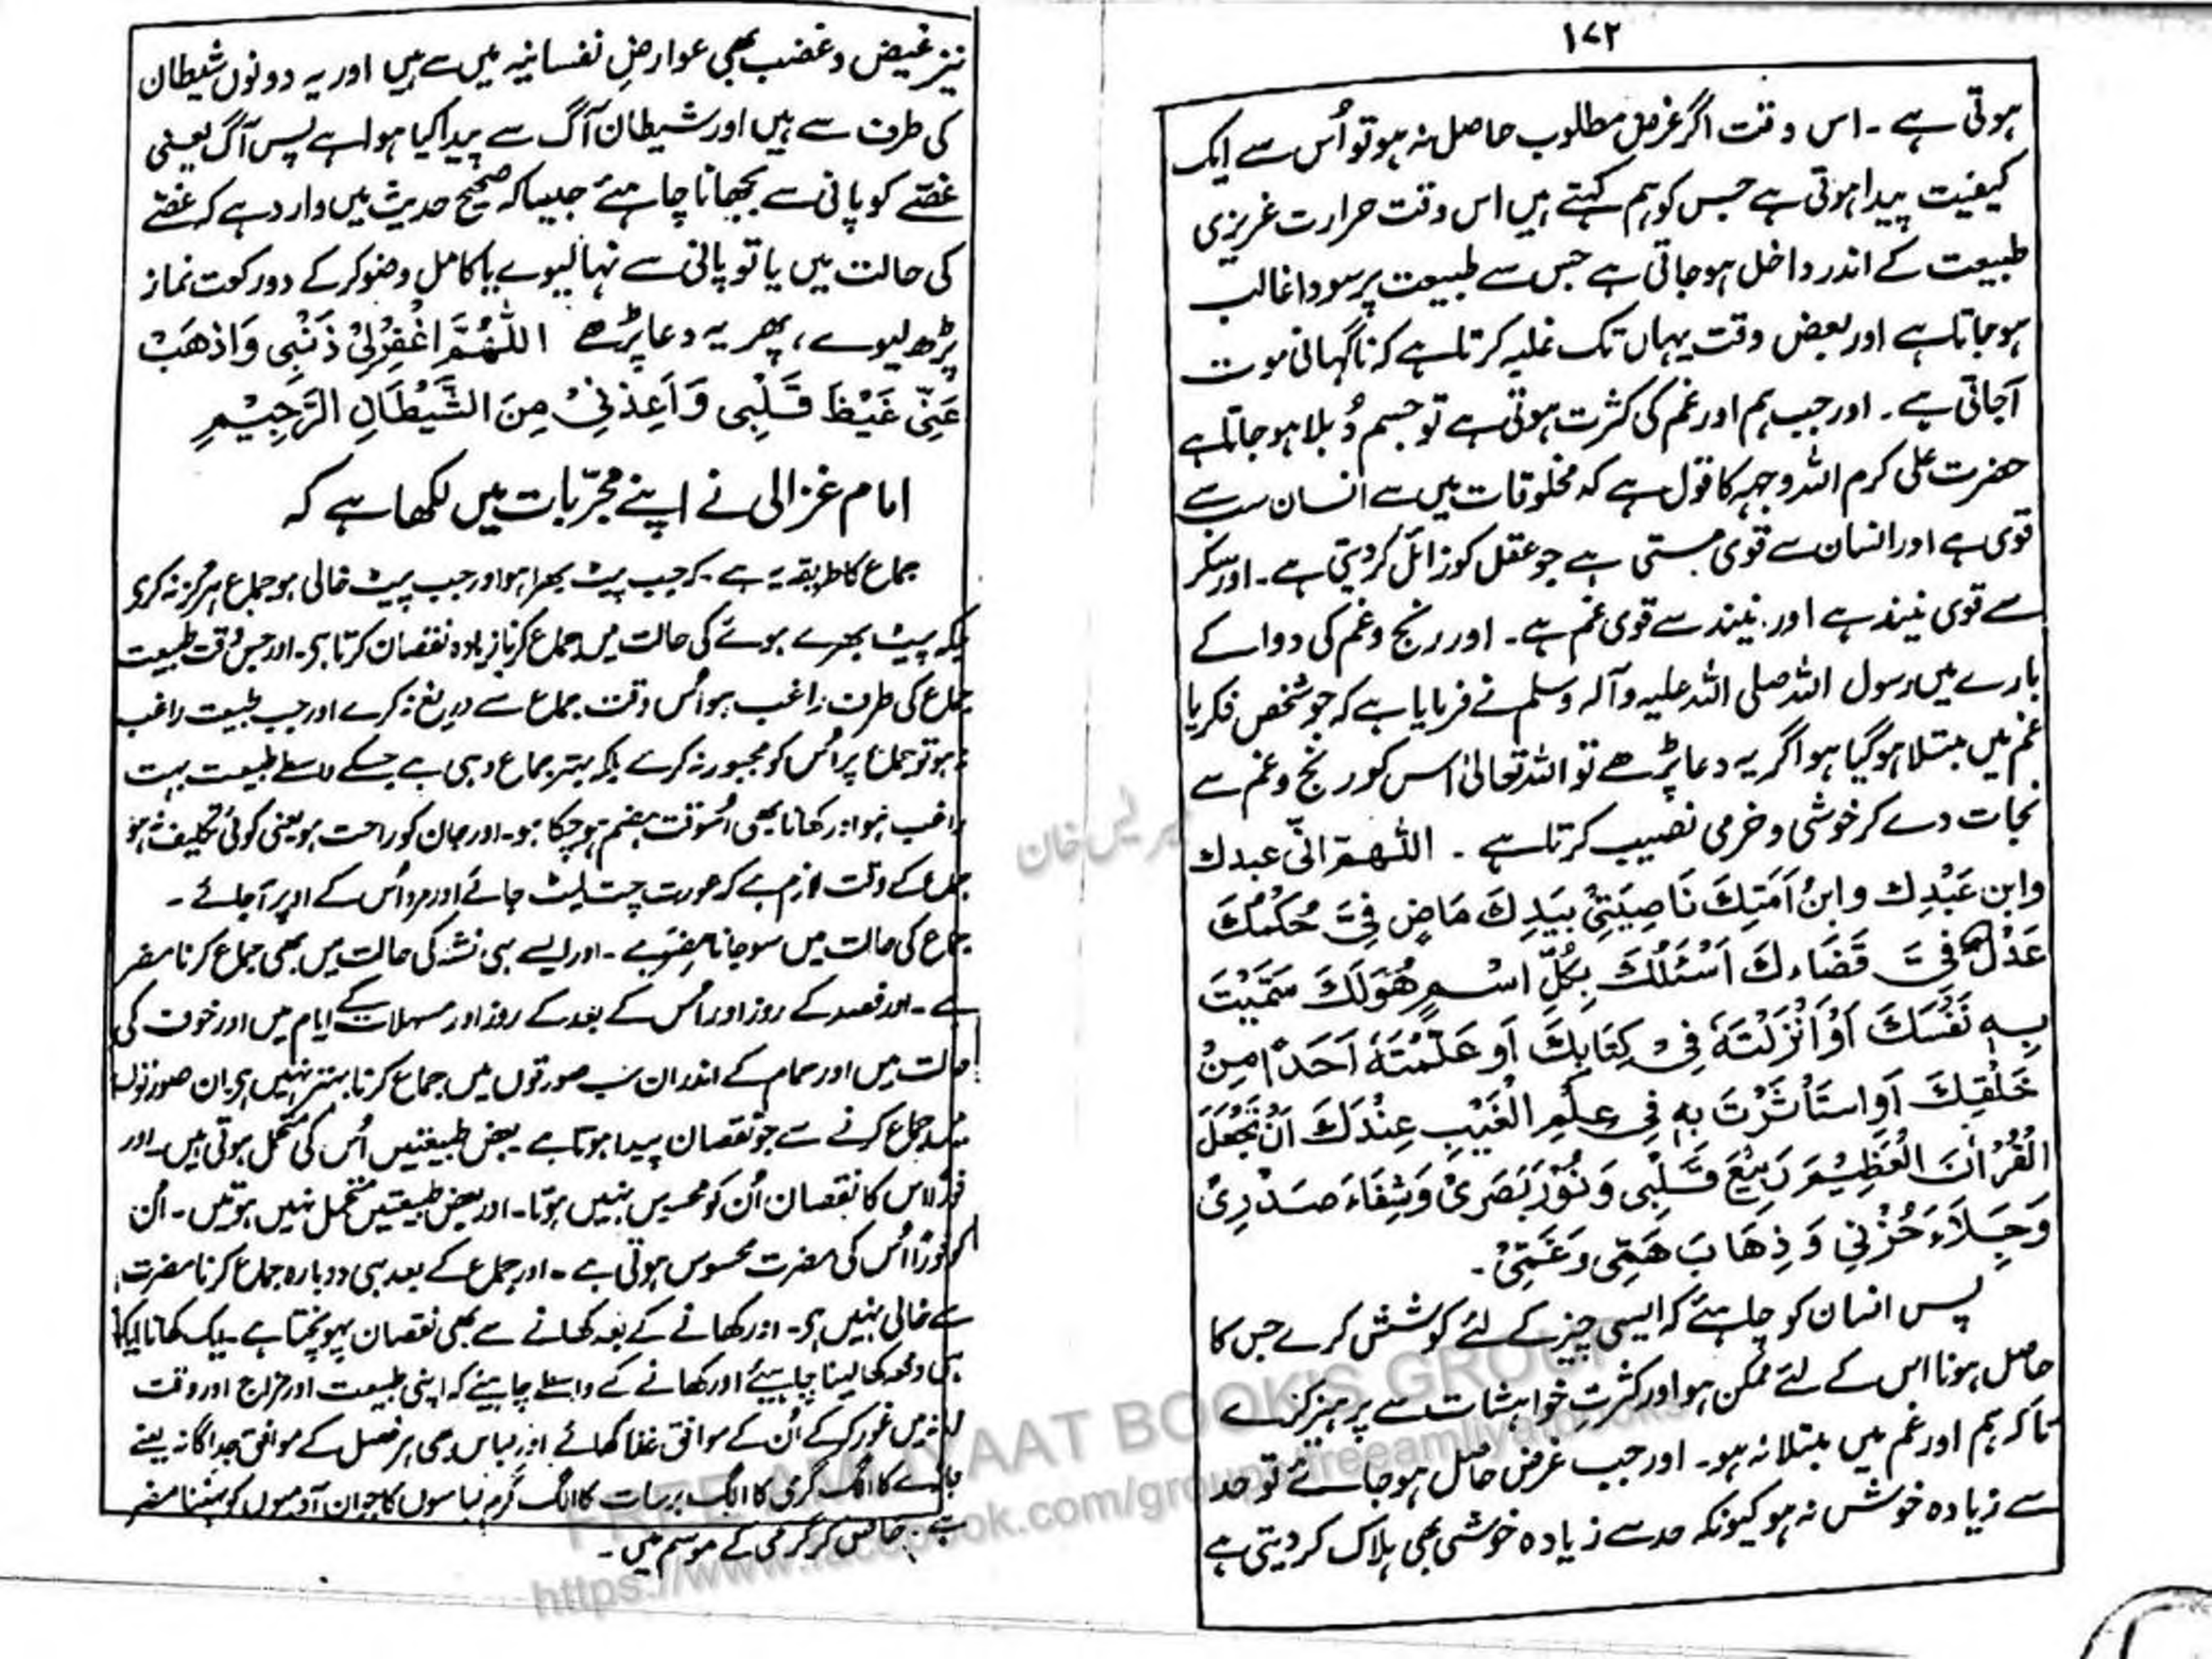 ۱۷۲
ہوتی ہے ۔ اس وقت اگر غرض مطلوب حاصل نہ ہو تو اُس سے ایک
کیفیت پیدا ہوتی ہے جس کو ہم کہتے ہیں اس وقت حرارت غریزی
طبیعت کے اندر داخل ہو جاتی ہے جس سے طبیعت پر سودا غالب
ہو جاتا ہے اور بعض وقت یہاں تک غلبہ کرتا ہے کہ ناگہانی موت
آجاتی ہے ۔ اور جب ہم اور غم کی کثرت ہوتی ہے تو جسم دُبلا ہو جاتا ہے
حضرت علی کرم اللہ وجہہ کا قول ہے کہ مخلوقات میں سے انسان سب سے
قوی ہے اور انسان سے قوی مستی ہے جو عقل کو زائل کر دیتی ہے ۔ اور سکر
سے قوی نیند ہے اور نیند سے قوی غم ہے ۔ اور رنج و غم کی دوا کے
بارے میں رسول اللہ صلی اللہ علیہ وآلہ وسلم نے فرمایا ہے کہ جو شخص فکر یا
غم میں مبتلا ہو گیا ہو اگر یہ دعا پڑھے تو اللہ تعالیٰ اس کو رنج و غم سے
نجات دے کر خوشی و خرمی نصیب کرتا ہے ۔ اللھم انّی عبدك
وابن عَبْدِك وابنُ اَمَتِكَ نَاصِیَتِیْ بِیَدِكَ مَاضٍ فِیَّ حُکْمُكَ
عَدْلٌ فِیَّ قَضَاءكَ اَسْئَلُكَ بِکُلِّ اسْمٍ ھُوَلَكَ سَمَّیْتَ
بِهٖ نَفْسَكَ اَوْاَنْزَلْتَهٗ فِیْ کِتَابِكَ اَو عَلَّمْتَهٗ اَحَدًا مِنْ
خَلْقِكَ اَوِاسْتَأْثَرْتَ بِهٖ فِی عِلْمِ الْغَیْبِ عِنْدَكَ اَنْ تَجْعَلَ
الْقُرْاٰنَ الْعَظِیْمَ رَبِیْعَ قَلْبِی وَنُوْرَ بَصَرِیْ وَشِفَاءَ صَدْرِیْ
وَجِلَاءَ حُزْنِی وَذِھَابَ ھَمِّی وَغَمِّیْ ۔
پس انسان کو چاہئے کہ ایسی چیز کے لئے کوشش کرے جس کا
حاصل ہونا اس کے لئے ممکن ہو اور کثرتِ خواہشات سے پرہیز کرے
تاکہ ہم اور غم میں مبتلا نہ ہو ۔ اور جب غرض حاصل ہو جائے تو حد
سے زیادہ خوش نہ ہو کیونکہ حد سے زیادہ خوشی بھی ہلاک کر دیتی ہے
نیز غیض و غضب بھی عوارضِ نفسانیہ میں سے ہیں اور یہ دونوں شیطان
کی طرف سے ہیں اور شیطان آگ سے پیدا کیا ہوا ہے پس آگ یعنی
غصّے کو پانی سے بجھانا چاہئے جیسا کہ صحیح حدیث میں وارد ہے کہ غصّے
کی حالت میں یا تو پانی سے نہا لیوے یا کامل وضو کر کے دو رکعت نماز
پڑھ لیوے ، پھر یہ دعا پڑھے اللّٰھُمَّ اغْفِرْلِیْ ذَنْبِی وَاَذْھَبْ
عَنِّی غَیْظَ قَلْبِی وَاَعِذْنِیْ مِنَ الشَّیْطَانِ الرَّجِیْمِ
امام غزالی نے اپنے مجرّبات میں لکھا ہے کہ
جماع کا طریقہ یہ ہے کہ جب پیٹ بھرا ہو اور جب پیٹ خالی ہو جماع ہرگز نہ کرے
بلکہ پیٹ بھرے ہوئے کی حالت میں جماع کرنا زیادہ نقصان کرتا ہے ۔ اور جس وقت طبیعت
جماع کی طرف راغب ہو اُس وقت جماع سے دریغ نہ کرے اور جب طبیعت راغب
نہ ہو تو جماع پر اُس کو مجبور نہ کرے بلکہ بہتر جماع وہی ہے جسکے واسطے طبیعت بہت
راغب ہو اور کھانا بھی اُسوقت ہضم ہو چکا ہو ۔ اور جان کو راحت ہو یعنی کوئی تکلیف نہ ہو
جماع کے وقت لازم ہے کہ عورت چت لیٹ جائے اور مرد اُس کے اوپر آجائے ۔
جماع کی حالت میں سو جانا مضر ہے ۔ اور ایسے ہی نشہ کی حالت میں بھی جماع کرنا مضر
ہے ۔ اور فصد کے روز اور اُس کے بعد کے روز اور مسہلات کے ایام میں اور خوف کی
حالت میں اور حمام کے اندر ان سب صورتوں میں جماع کرنا بہتر نہیں ہے ان صورتوں
میں جماع کرنے سے جو نقصان پیدا ہوتا ہے بعض طبیعتیں اُس کی متحمل ہوتی ہیں ۔ اور
فوراً اس کا نقصان اُن کو محسوس نہیں ہوتا ۔ اور بعض طبیعتیں متحمل نہیں ہوتیں ۔ اُن
کو فوراً اُس کی مضرت محسوس ہوتی ہے ۔ اور جماع کے بعد ہی دوبارہ جماع کرنا مضرت
سے خالی نہیں ہے ۔ اور کھانے کے بعد کھانے سے بھی نقصان پہونچتا ہے ۔ بلکہ کھانا ایک
ہی دفعہ کھا لینا چاہئیے اور کھانے کے واسطے چاہیئے کہ اپنی طبیعت اور مزاج اور وقت
میں غور کر کے اُن کے موافق غذا کھائے اور لباس بھی ہر فصل کے موافق جداگانہ پہنے
جاڑے کا الگ گرمی کا الگ برسات کا الگ گرم لباسوں کا جوان آدمیوں کو پہننا مضر
ہے خاص کر گرمی کے موسم میں ۔
FREE AMLIYAAT BOOKS GROUP
https://www.facebook.com/groups/freeamliyatbooks